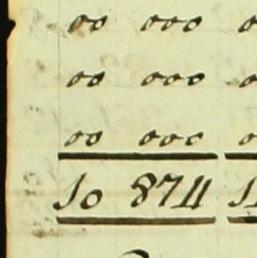 00 000
00 000
00 000
10 8711